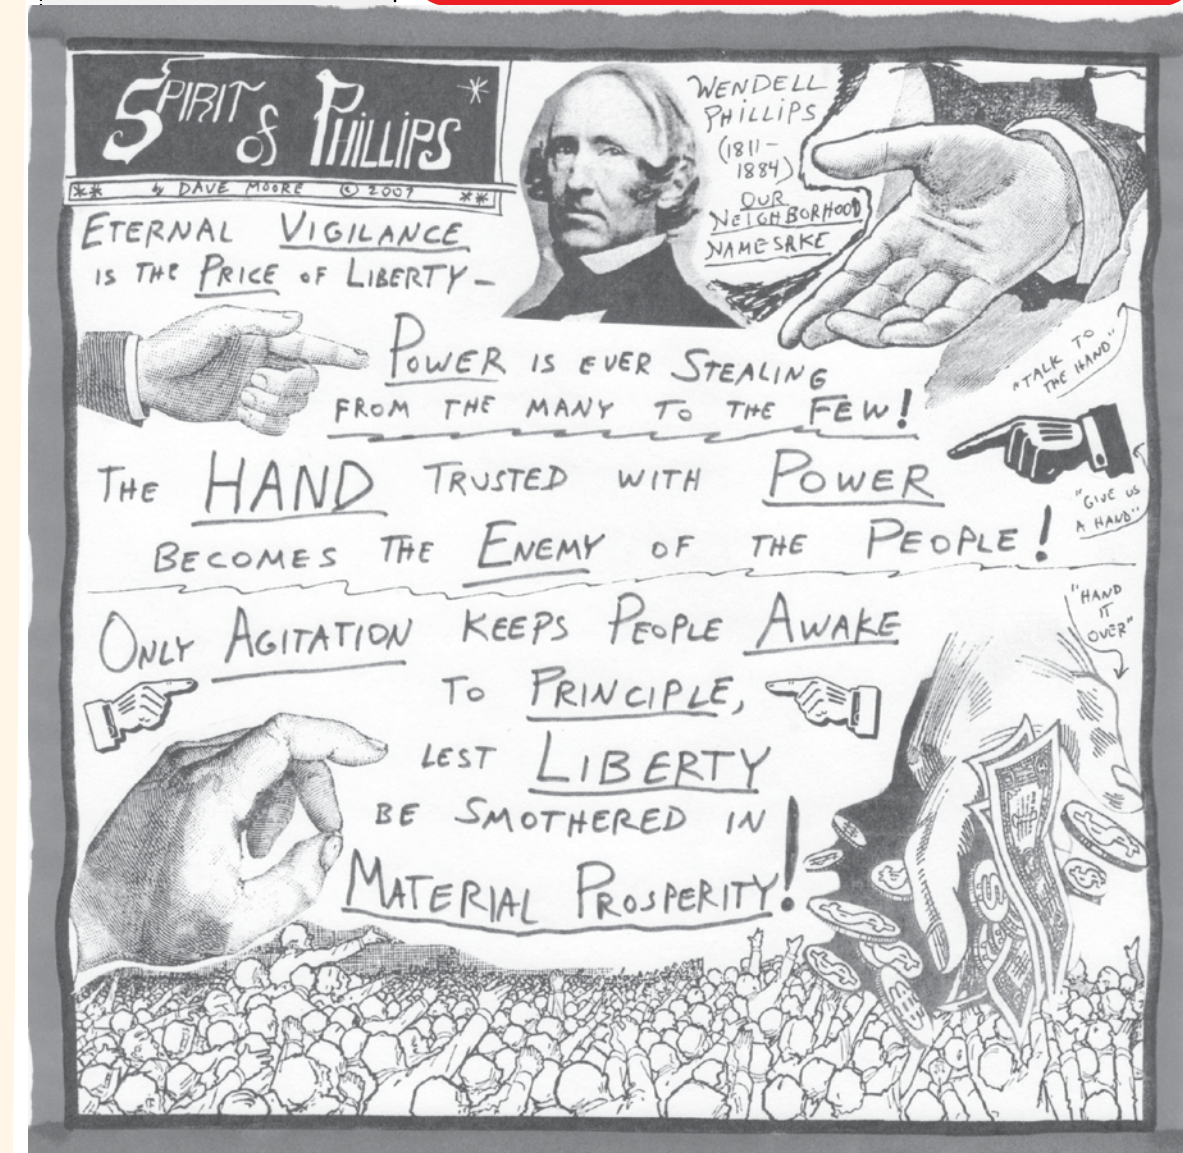 SPIRIT of PHILLIPS *
** by DAVE MOORE © 2009 **
WENDELL
PHILLIPS
(1811–
1884)
OUR
NEIGHBORHOOD
NAMESAKE
ETERNAL VIGILANCE
IS THE PRICE OF LIBERTY –
POWER IS EVER STEALING
FROM THE MANY TO THE FEW!
"TALK TO
THE HAND"
THE HAND TRUSTED WITH POWER
BECOMES THE ENEMY OF THE PEOPLE!
"GIVE US
A HAND"
ONLY AGITATION KEEPS PEOPLE AWAKE
TO PRINCIPLE,
LEST LIBERTY
BE SMOTHERED IN
MATERIAL PROSPERITY!
"HAND
IT
OVER"